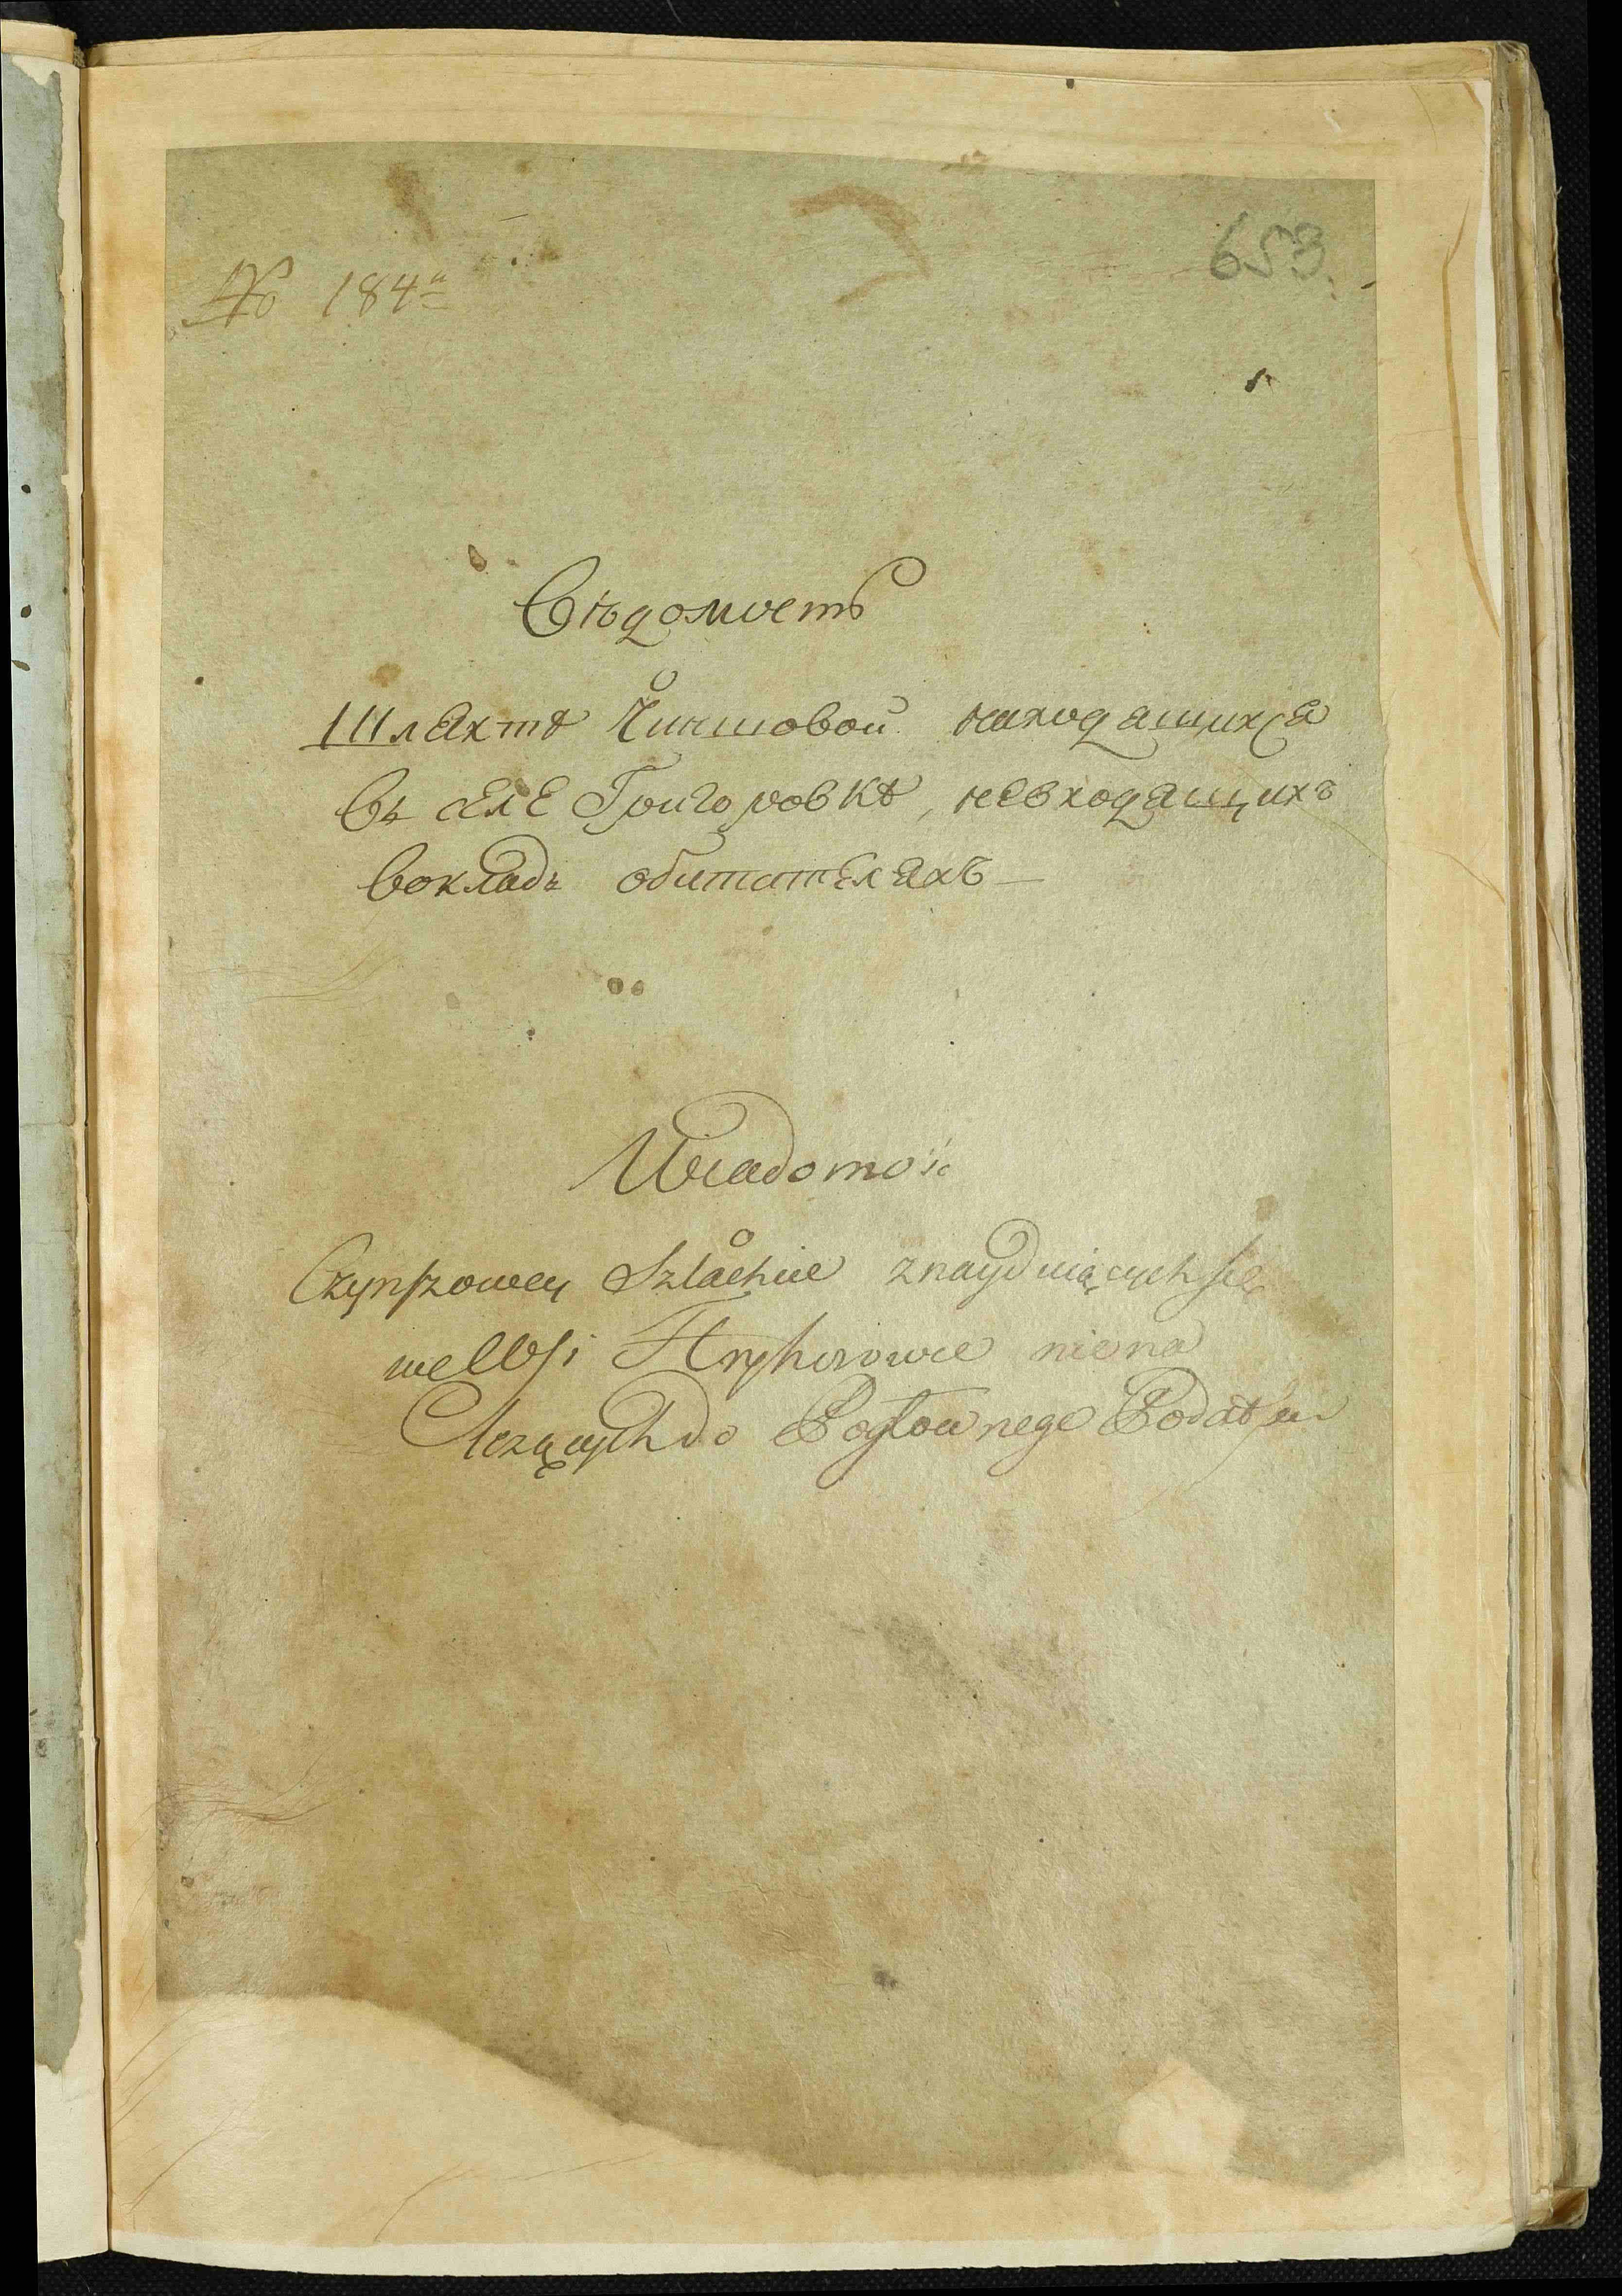 № 184й
653.
Вѣдомость
Шляхтѣ Чиншовой находящихся
въ селе Григоровкѣ, невходящихъ
вокладъ обитателяхъ
Wiadomość
Czynszowey Szlachcie znayduiących się
we Wsi Hryhorowce nie na
leżących do Pogłownego Podatku